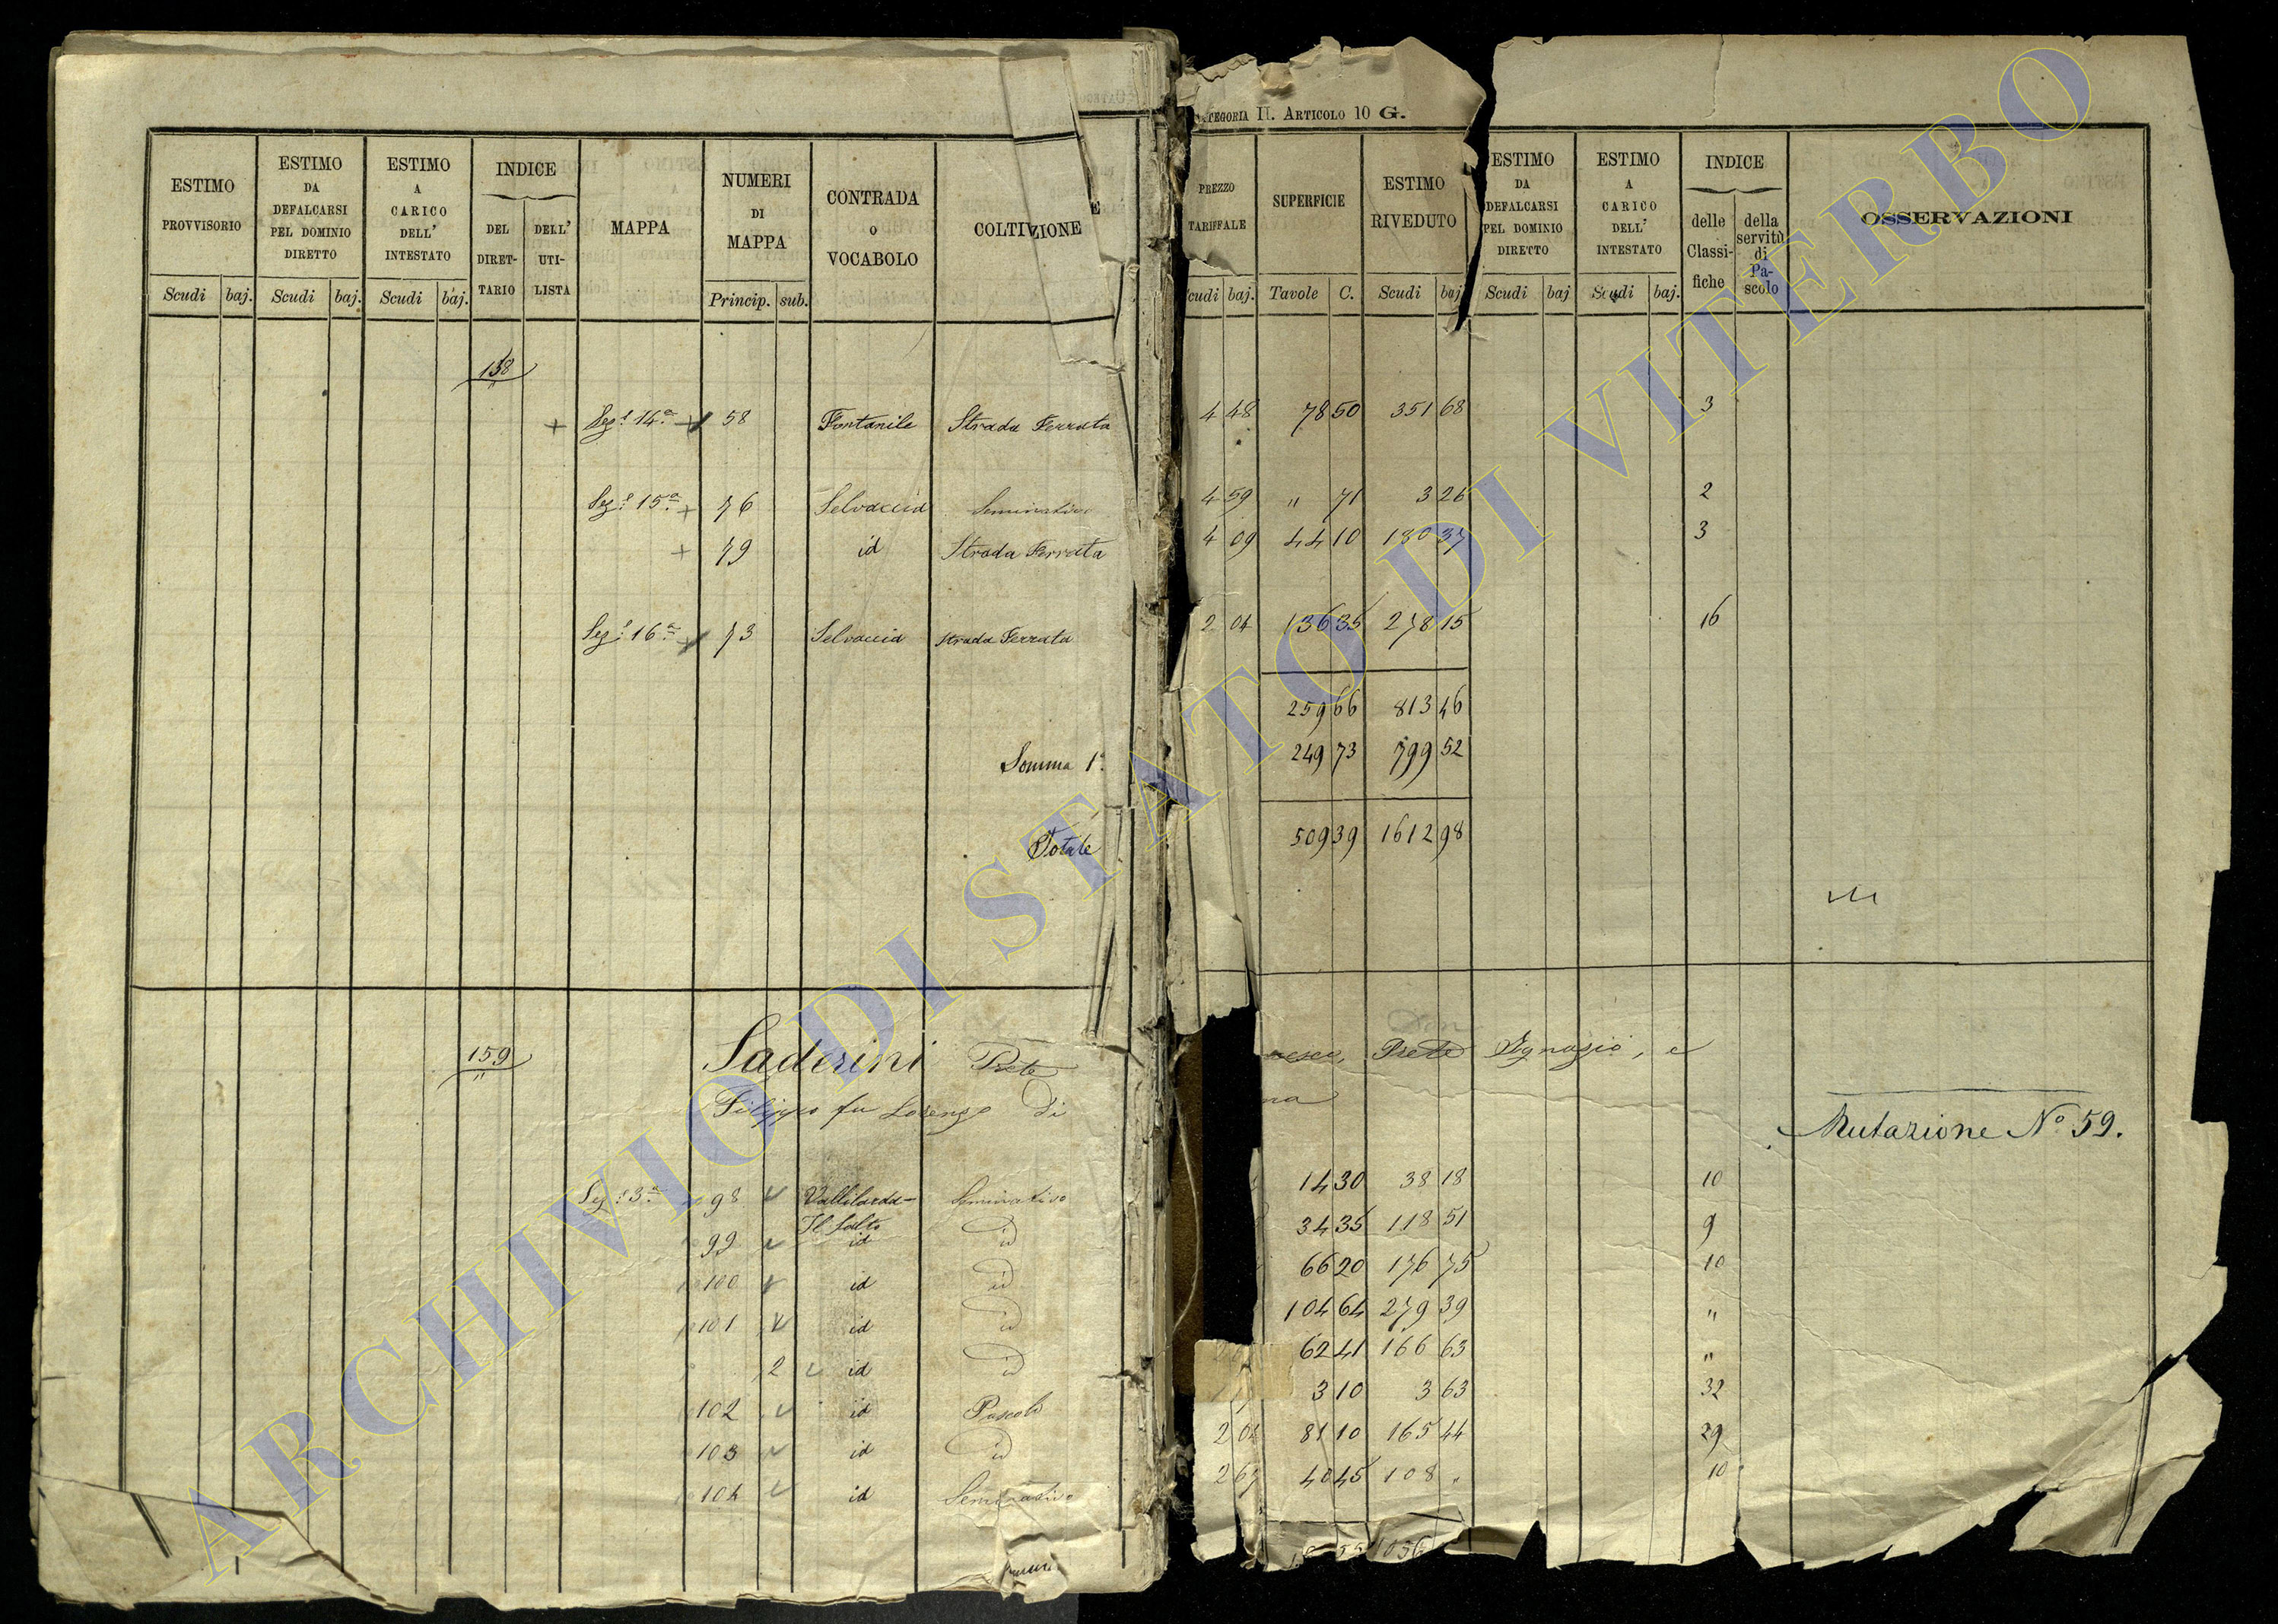 CATEGORIA II. ARTICOLO 10 G.
ESTIMO PROVVISORIO
Scudi baj.
ESTIMO DA DEFALCARSI PEL DOMINIO DIRETTO
Scudi baj.
ESTIMO A CARICO DELL' INTESTATO
Scudi baj.
INDICE
DEL DIRET-TARIO
DELL' UTI-LISTA
MAPPA
NUMERI DI MAPPA
Princip. sub.
CONTRADA O VOCABOLO
COLTIVAZIONE
PREZZO TARIFFALE
Scudi baj.
SUPERFICIE
Tavole C.
ESTIMO RIVEDUTO
Scudi baj
ESTIMO DA DEFALCARSI PEL DOMINIO DIRETTO
Scudi baj
ESTIMO A CARICO DELL' INTESTATO
Scudi baj.
INDICE
delle Classi-fiche
della servitù di Pa-scolo
OSSERVAZIONI
158
Sez.e 14a 58 Fontanile Strada Ferrata 4 48 78 50 351 68 3
Sez.e 15a 76 Selvaccia Seminativo 4 59 " 71 3 26 2
79 id Strada Ferrata 4 09 44 10 180 37 3
Sez.e 16a 73 Selvaccia Strada Ferrata 2 04 136 35 278 15 16
259 66 813 46
Somma 1a 249 73 799 52
Totale 509 39 1612 98
159 Saderini Prete Prete Don Ignazio, e
Filippo fu Lorenzo di
Mutazione No 59.
Sez.e 3a 98 Vallilarda- Seminativo 14 30 38 18 10
Il Salto
99 id id 34 35 118 51 9
100 id id 66 20 176 75 10
101 id id 104 64 279 39 "
2 id id 62 41 166 63 "
102 id Pascolo 3 10 3 63 32
103 id id 2 04 81 10 165 44 29
104 id Seminativo 2 67 40 45 108 " 10
ARCHIVIO DI STATO DI VITERBO